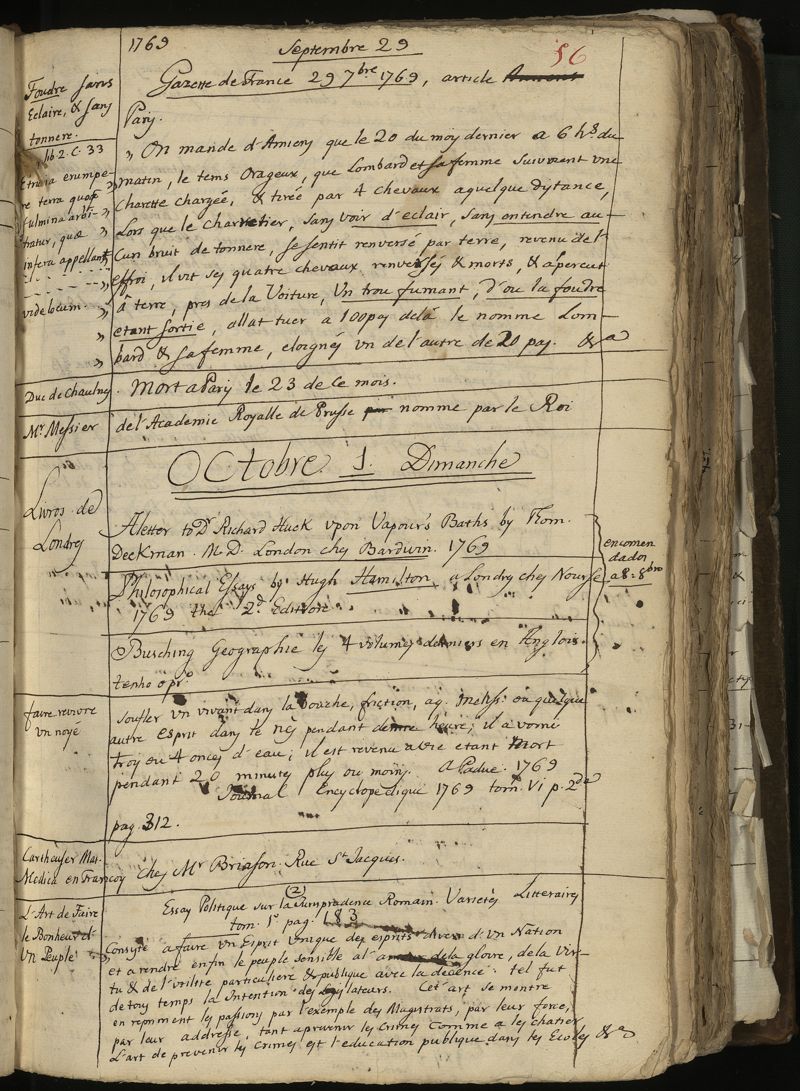 1769
Septembre 29
56
Gazette de France 29 7bre 1769, article
Foudre sans
Eclaire, & sans
tonnere.
lib. 2. C. 33
Etruria erumpe-
re terra quoq
fulmina arbi-
tratur, quæ
infera appellant
vide locum.
Pary.
„ On mande d'Amiens que le 20 du moy dernier a 6 hs. du
matin, le tems Orageux, que Lombard et sa femme suivoient une
Charette chargée, & tirée par 4 chevaux a quelque dystance,
Lors que le charretier, sans voir d'eclair, sans entendre au-
cun bruit de tonnere, se sentit renversé par terre, revenu de l'
effroi, il vit ses quatre chevaux renversés & morts, & aperceut
à terre, pres de la Voiture, Un trou fumant, d'ou la foudre
etant sortie, allat tuer a 100 pas delà le nomme Lom-
bard & sa femme, eloignés un de l'autre de 20 pas. &a
Duc de Chaulnes. Mort a Pary le 23 de ce mois.
Mr. Messier
de l'Academie Royalle de Prusse nomme par le Roi
OCtobre 1. Dimanche
Livros de
Londres
A letter to Dr. Richard Huck upon Vapour's Baths by Thom.
Deckman. M.D. London chez Bardwin. 1769
Philosophical Essays by Hugh Hamilton a Londres chez Nourse
1769 the 2d. Edition
Busching Geographie les 4 volumes derniers en Anglois.
tenho o pro.
encomen
dados
a 8. 8bro
faire revivre
un noyé
soufler un vivant dans la bouche, friction, aq. meliss. ou quelque
autre esprit dans le nés pendant demie heure; il a vomi
troy ou 4 onces d'eau; il est revenu a vie etant mort
pendant 20 minutes plus ou moins. a Padue. 1769
Journal Encyclopedique 1769 tom. VI p. 2da
pag. 312.
Cartheuser Mat.
Medica en Francoy
chez Mr Briasson. Rue St Jacques.
L'Art de Faire
le Bonheur d'
Un Peuple
Essay Politique sur la Jurisprudence Romain. Varietés Litteraires
(2)
tom. 1o pag. 183
Consyte a faire Un Esprit Unique des esprits divers d'Un Nation
et a rendre enfin le peuple sensible al' de la gloire, de la Vir-
tu & de l'utilite particuliere & publique avec la decence. tel fut
de tous temps la Intention des Legislateurs. Cet art se montre
en reprimant les passions par l'exemple des Magistrats, par leur force,
par leur addresse, tant a prevenir les Crimes comme a les chatier
L'art de prevenir les crimes est l'education publique dans les Ecoles &a